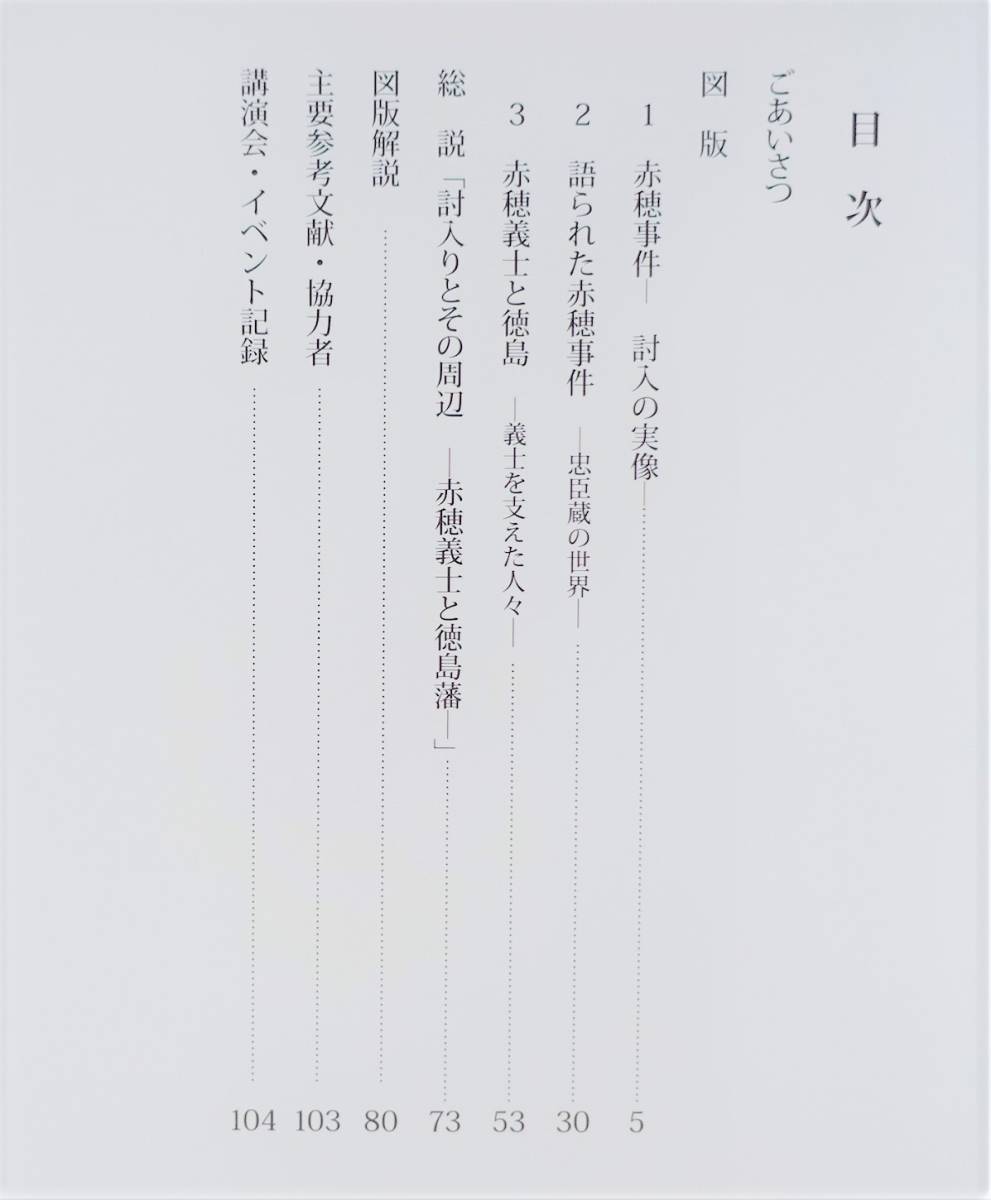 目次
ごあいさつ
図版
1 赤穂事件― 討入の実像―……5
2 語られた赤穂事件 ―忠臣蔵の世界―……30
3 赤穂義士と徳島 ―義士を支えた人々―……53
総説「討入りとその周辺 ―赤穂義士と徳島藩―」……73
図版解説……80
主要参考文献・協力者……103
講演会・イベント記録……104